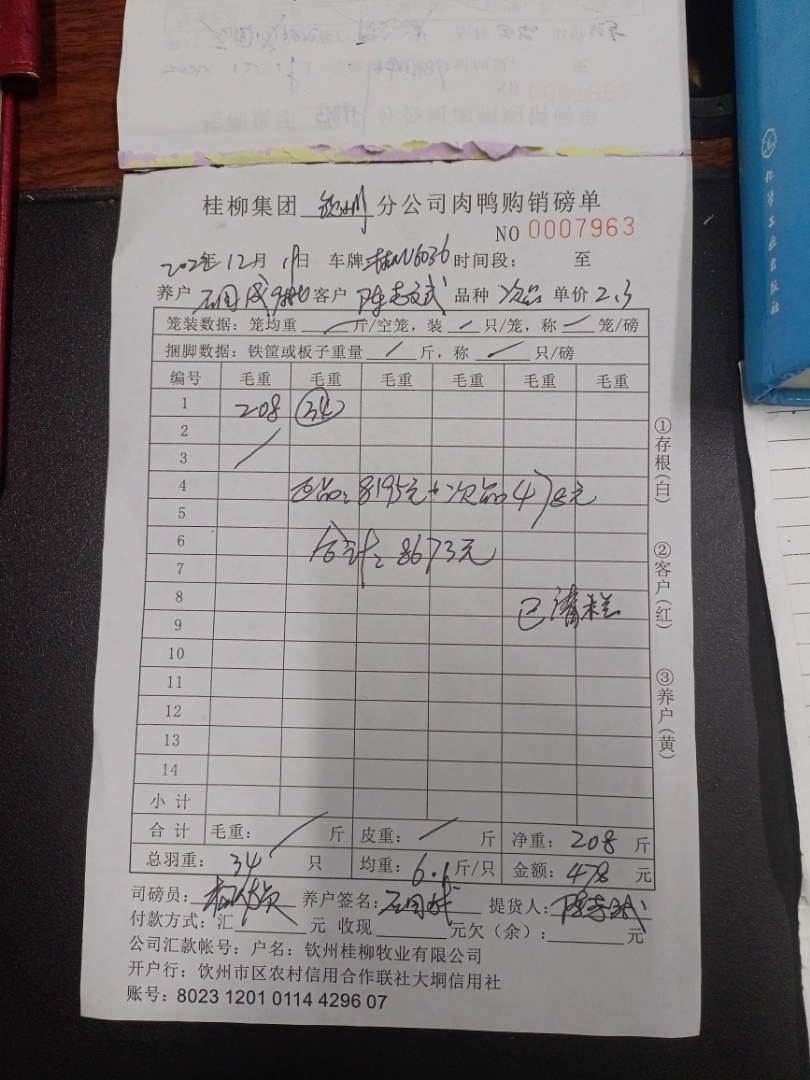 桂柳集团 钦州 分公司肉鸭购销磅单
NO 0007963
年12月19日 车牌 时间段： 至
养户 石国成 客户 陈志武 品种 次品 单价 2.3
笼装数据：笼均重 / 斤/空笼，装 / 只/笼，称 / 笼/磅
捆脚数据：铁筐或板子重量 / 斤，称 / 只/磅
编号 毛重 毛重 毛重 毛重 毛重 毛重
1 208 34
2
3 /
4 正品：8195元+次品478元
5
6 合计：8673元
7
8 已清
9
10
11
12
13
14
小计
合计 毛重： / 斤 皮重： / 斤 净重：208 斤
总羽重：34 只 均重：6.1斤/只 金额：478 元
司磅员： 养户签名：石国成 提货人：陈志武
付款方式：汇 元 收现 元欠（余）： 元
公司汇款帐号：户名：钦州桂柳牧业有限公司
开户行：钦州市区农村信用合作联社大垌信用社
账号：8023 1201 0114 4296 07
①存根（白）
②客户（红）
③养户（黄）
化学工业出版社